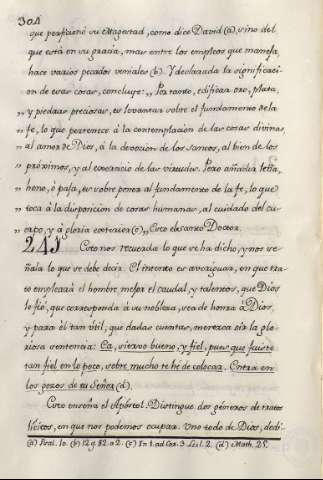 304
que perficionó su Magestad, como dice David (a), sino del
que está en su gracia, mas entre los empleos que maneja,
hace varios pecados veniales (b). Y declarada la significaci-
on de esas cosas, concluye: „ Por tanto, edificar oro, plata,
„ y piedras preciosas, es levantar sobre el fundamento de la
„ fe, lo que pertenece á la contemplación de las cosas divinas,
al amor de Dios, á la devocion de los santos, al bien de los
próximos, y al exercicio de las virtudes. Pero añadir leña,
„ heno, ò paja, es sobre poner al fundamento de la fe, lo que
„ toca à la disposicion de cosas humanas, al cuidado del cu-
„ erpo, y à gloria exterior (c). „ Esto el santo Doctor.
241 Esto nos recuerda lo que se ha dicho, y nos se-
ñala lo que se debe decir. El intento es averiguar, en que tra-
to empleará el hombre mejor el caudal, y talentos, que Dios
le fió, que corresponda à su nobleza, sea de honra à Dios,
y para él tan útil, que dadas cuentas, merezca oir la glo-
riosa sentencia: Ea, siervo bueno, y fiel, pues que fuiste
tan fiel en lo poco, sobre mucho te hé de colocar. Entra en
los gozos de tu Señor (d).
Esto enseña el Apóstol. Distingue dos géneros de tratos
lícitos, en que nos podemos ocupar. Uno todo de Dios, dedi-
(a) Psal. 10. (b) 12 q. 82. a 2. (c) In 1. ad Cor. 3 Lect. 2. (d) Math. 25.